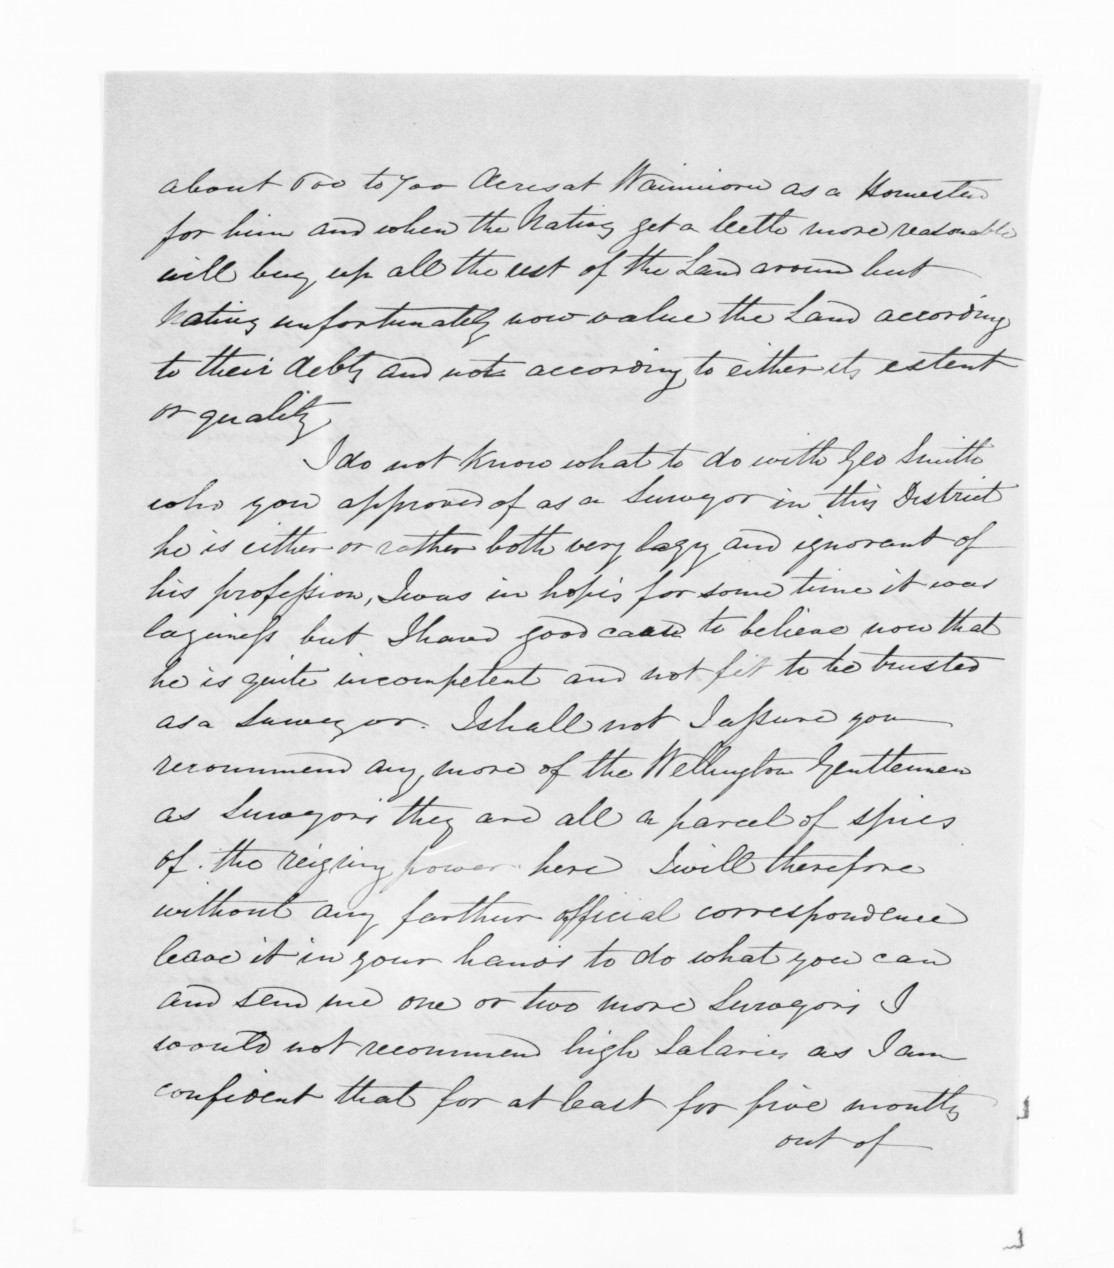 about 600 to 700 Acres at as a Homested
for him and when the Natives get a little more reasonable
will buy up all the rest of the Land around but
Natives unfortunately now value the Land according
to their debts and not according to either its extent
or quality
I do not know what to do with Geo Smith
who you approved of as a Surveyor in this District
he is either or rather both very lazy and ignorant of
his profession, I was in hopes for some time it was
laziness but I have good cause to believe now that
he is quite incompetent and not fit to be trusted
as a Surveyor. I shall not I assure you
recommend any more of the Wellington Gentlemen
as Surveyors they are all a parcel of spies
of the reigning power here I will therefore
without any farther official correspondence
leave it in your hands to do what you can
and send me one or two more Surveyors I
would not recommend high Salaries as I am
confident that for at least for five months
out of